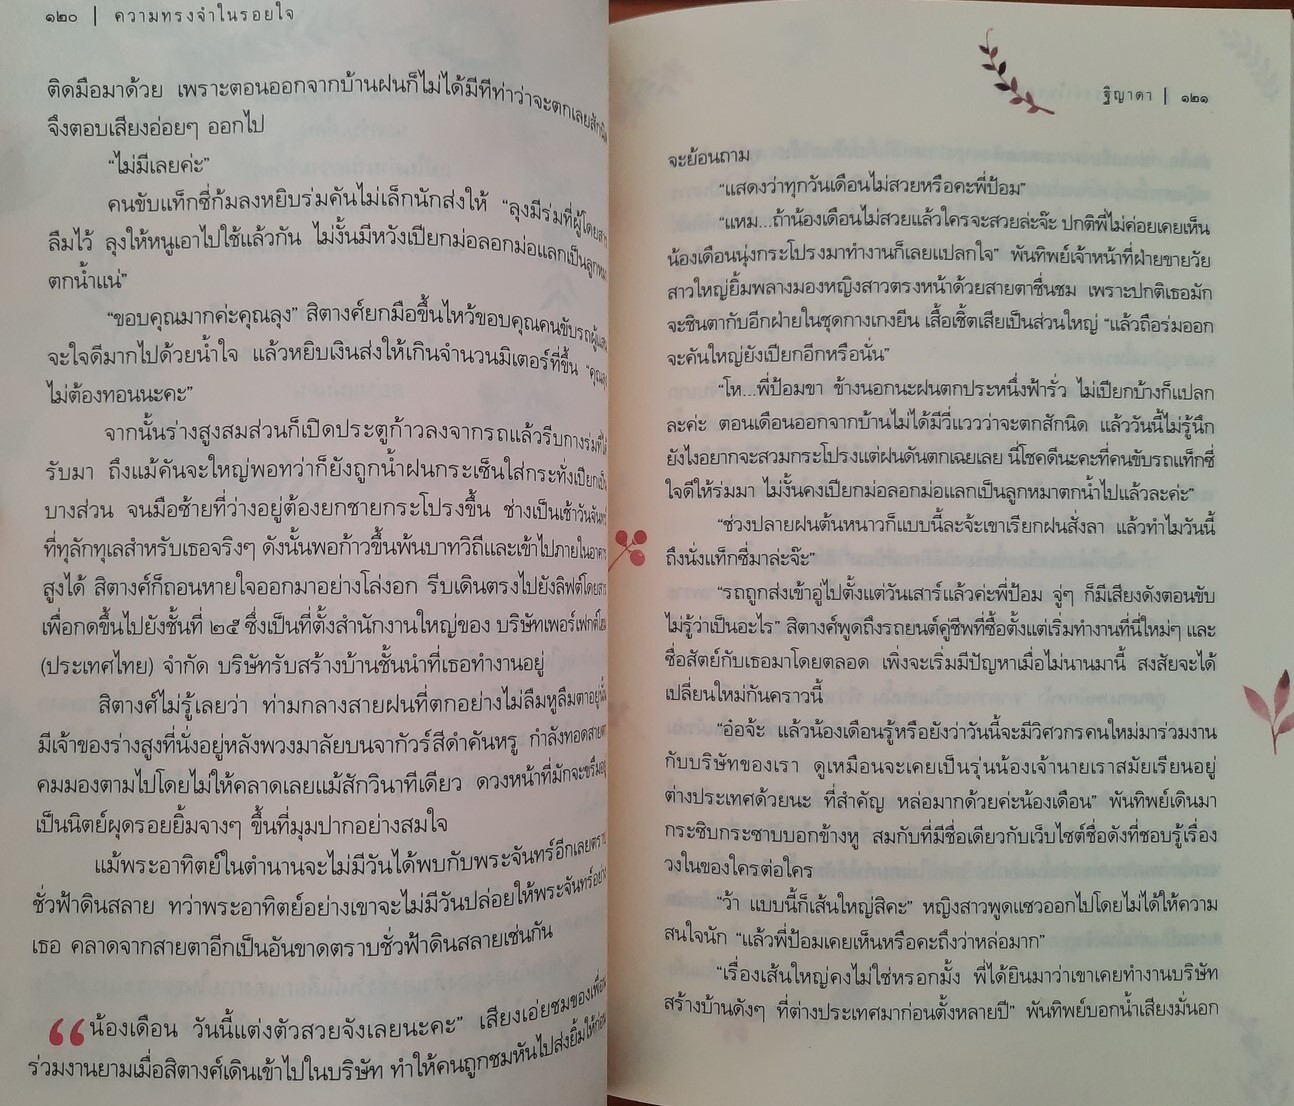 ๑๒๐ | ความทรงจำในรอยใจ
ติดมือมาด้วย เพราะตอนออกจากบ้านฝนก็ไม่ได้มีทีท่าว่าจะตกเลยสักนิด
จึงตอบเสียงอ่อยๆ ออกไป
“ไม่มีเลยค่ะ”
คนขับแท็กซี่ก้มลงหยิบร่มคันไม่เล็กนักส่งให้ “ลุงมีร่มที่ผู้โดยสาร
ลืมไว้ ลุงให้หนูเอาไปใช้แล้วกัน ไม่งั้นมีหวังเปียกม่อลอกม่อแลกเป็นลูกหมา
ตกน้ำแน่”
“ขอบคุณมากค่ะคุณลุง” สิตางศุ์ยกมือขึ้นไหว้ขอบคุณคนขับรถผู้แสน
จะใจดีมากไปด้วยน้ำใจ แล้วหยิบเงินส่งให้เกินจำนวนมิเตอร์ที่ขึ้น “คุณลุง
ไม่ต้องทอนนะคะ”
จากนั้นร่างสูงสมส่วนก็เปิดประตูก้าวลงจากรถแล้วรีบกางร่มที่ได้
รับมา ถึงแม้คันจะใหญ่พอทว่าก็ยังถูกน้ำฝนกระเซ็นใส่กระทั่งเปียกเป็น
บางส่วน จนมือซ้ายที่ว่างอยู่ต้องยกชายกระโปรงขึ้น ช่างเป็นเช้าวันจันทร์
ที่ทุลักทุเลสำหรับเธอจริงๆ ดังนั้นพอก้าวขึ้นพ้นบาทวิถีและเข้าไปภายในอาคาร
สูงได้ สิตางศุ์ก็ถอนหายใจออกมาอย่างโล่งอก รีบเดินตรงไปยังลิฟต์โดยสาร
เพื่อกดขึ้นไปยังชั้นที่ ๒๕ ซึ่งเป็นที่ตั้งสำนักงานใหญ่ของ บริษัทเพอร์เฟกต์โฮม
(ประเทศไทย) จำกัด บริษัทรับสร้างบ้านชั้นนำที่เธอทำงานอยู่
สิตางศุ์ไม่รู้เลยว่า ท่ามกลางสายฝนที่ตกอย่างไม่ลืมหูลืมตาอยู่นั้น
มีเจ้าของร่างสูงที่นั่งอยู่หลังพวงมาลัยบนจากัวร์สีดำคันหรู กำลังทอดสายตา
คมมองตามไปโดยไม่ให้คลาดเลยแม้สักวินาทีเดียว ดวงหน้าที่มักจะขรึมอยู่
เป็นนิตย์ผุดรอยยิ้มจางๆ ขึ้นที่มุมปากอย่างสมใจ
แม้พระอาทิตย์ในตำนานจะไม่มีวันได้พบกับพระจันทร์อีกเลยตราบ
ชั่วฟ้าดินสลาย ทว่าพระอาทิตย์อย่างเขาจะไม่มีวันปล่อยให้พระจันทร์อย่าง
เธอ คลาดจากสายตาอีกเป็นอันขาดตราบชั่วฟ้าดินสลายเช่นกัน
“น้องเดือน วันนี้แต่งตัวสวยจังเลยนะคะ” เสียงเอ่ยชมของเพื่อน
ร่วมงานยามเมื่อสิตางศุ์เดินเข้าไปในบริษัท ทำให้คนถูกชมหันไปส่งยิ้มให้ก่อน
ฐิญาดา | ๑๒๑
จะย้อนถาม
“แสดงว่าทุกวันเดือนไม่สวยหรือคะพี่ป้อม”
“แหม...ถ้าน้องเดือนไม่สวยแล้วใครจะสวยล่ะจ๊ะ ปกติพี่ไม่ค่อยเคยเห็น
น้องเดือนนุ่งกระโปรงมาทำงานก็เลยแปลกใจ” พันทิพย์เจ้าหน้าที่ฝ่ายขายวัย
สาวใหญ่ยิ้มพลางมองหญิงสาวตรงหน้าด้วยสายตาชื่นชม เพราะปกติเธอมัก
จะชินตากับอีกฝ่ายในชุดกางเกงยีน เสื้อเชิ้ตเสียเป็นส่วนใหญ่ “แล้วถือร่มออก
จะคันใหญ่ยังเปียกอีกหรือนั่น”
“โห...พี่ป้อมขา ข้างนอกนะฝนตกประหนึ่งฟ้ารั่ว ไม่เปียกบ้างก็แปลก
ละค่ะ ตอนเดือนออกจากบ้านไม่ได้มีวี่แววว่าจะตกสักนิด แล้ววันนี้ไม่รู้นึก
ยังไงอยากจะสวมกระโปรงแต่ฝนดันตกเฉยเลย นี่โชคดีนะคะที่คนขับรถแท็กซี่
ใจดีให้ร่มมา ไม่งั้นคงเปียกม่อลอกม่อแลกเป็นลูกหมาตกน้ำไปแล้วละค่ะ”
“ช่วงปลายฝนต้นหนาวก็แบบนี้ละจ้ะเขาเรียกฝนสั่งลา แล้วทำไมวันนี้
ถึงนั่งแท็กซี่มาล่ะจ๊ะ”
“รถถูกส่งเข้าอู่ไปตั้งแต่วันเสาร์แล้วค่ะพี่ป้อม จู่ๆ ก็มีเสียงดังตอนขับ
ไม่รู้ว่าเป็นอะไร” สิตางศุ์พูดถึงรถยนต์คู่ชีพที่ซื้อตั้งแต่เริ่มทำงานที่นี่ใหม่ๆ และ
ซื่อสัตย์กับเธอมาโดยตลอด เพิ่งจะเริ่มมีปัญหาเมื่อไม่นานมานี้ สงสัยจะได้
เปลี่ยนใหม่กันคราวนี้
“อ๋อจ้ะ แล้วน้องเดือนรู้หรือยังว่าวันนี้จะมีวิศวกรคนใหม่มาร่วมงาน
กับบริษัทของเรา ดูเหมือนจะเคยเป็นรุ่นน้องเจ้านายเราสมัยเรียนอยู่
ต่างประเทศด้วยนะ ที่สำคัญ หล่อมากด้วยค่ะน้องเดือน” พันทิพย์เดินมา
กระซิบกระซาบบอกข้างหู สมกับที่มีชื่อเดียวกับเว็บไซต์ชื่อดังที่ชอบรู้เรื่อง
วงในของใครต่อใคร
“ว้า แบบนี้ก็เส้นใหญ่สิคะ” หญิงสาวพูดแซวออกไปโดยไม่ได้ให้ความ
สนใจนัก “แล้วพี่ป้อมเคยเห็นหรือคะถึงว่าหล่อมาก”
“เรื่องเส้นใหญ่คงไม่ใช่หรอกมั้ง พี่ได้ยินมาว่าเขาเคยทำงานบริษัท
สร้างบ้านดังๆ ที่ต่างประเทศมาก่อนตั้งหลายปี” พันทิพย์บอกน้ำเสียงมั่นอก